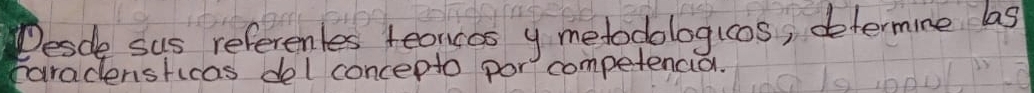 Desde sus referentes teoricos y metodologicos, determine las
caracteristicas del concepto por competencia.